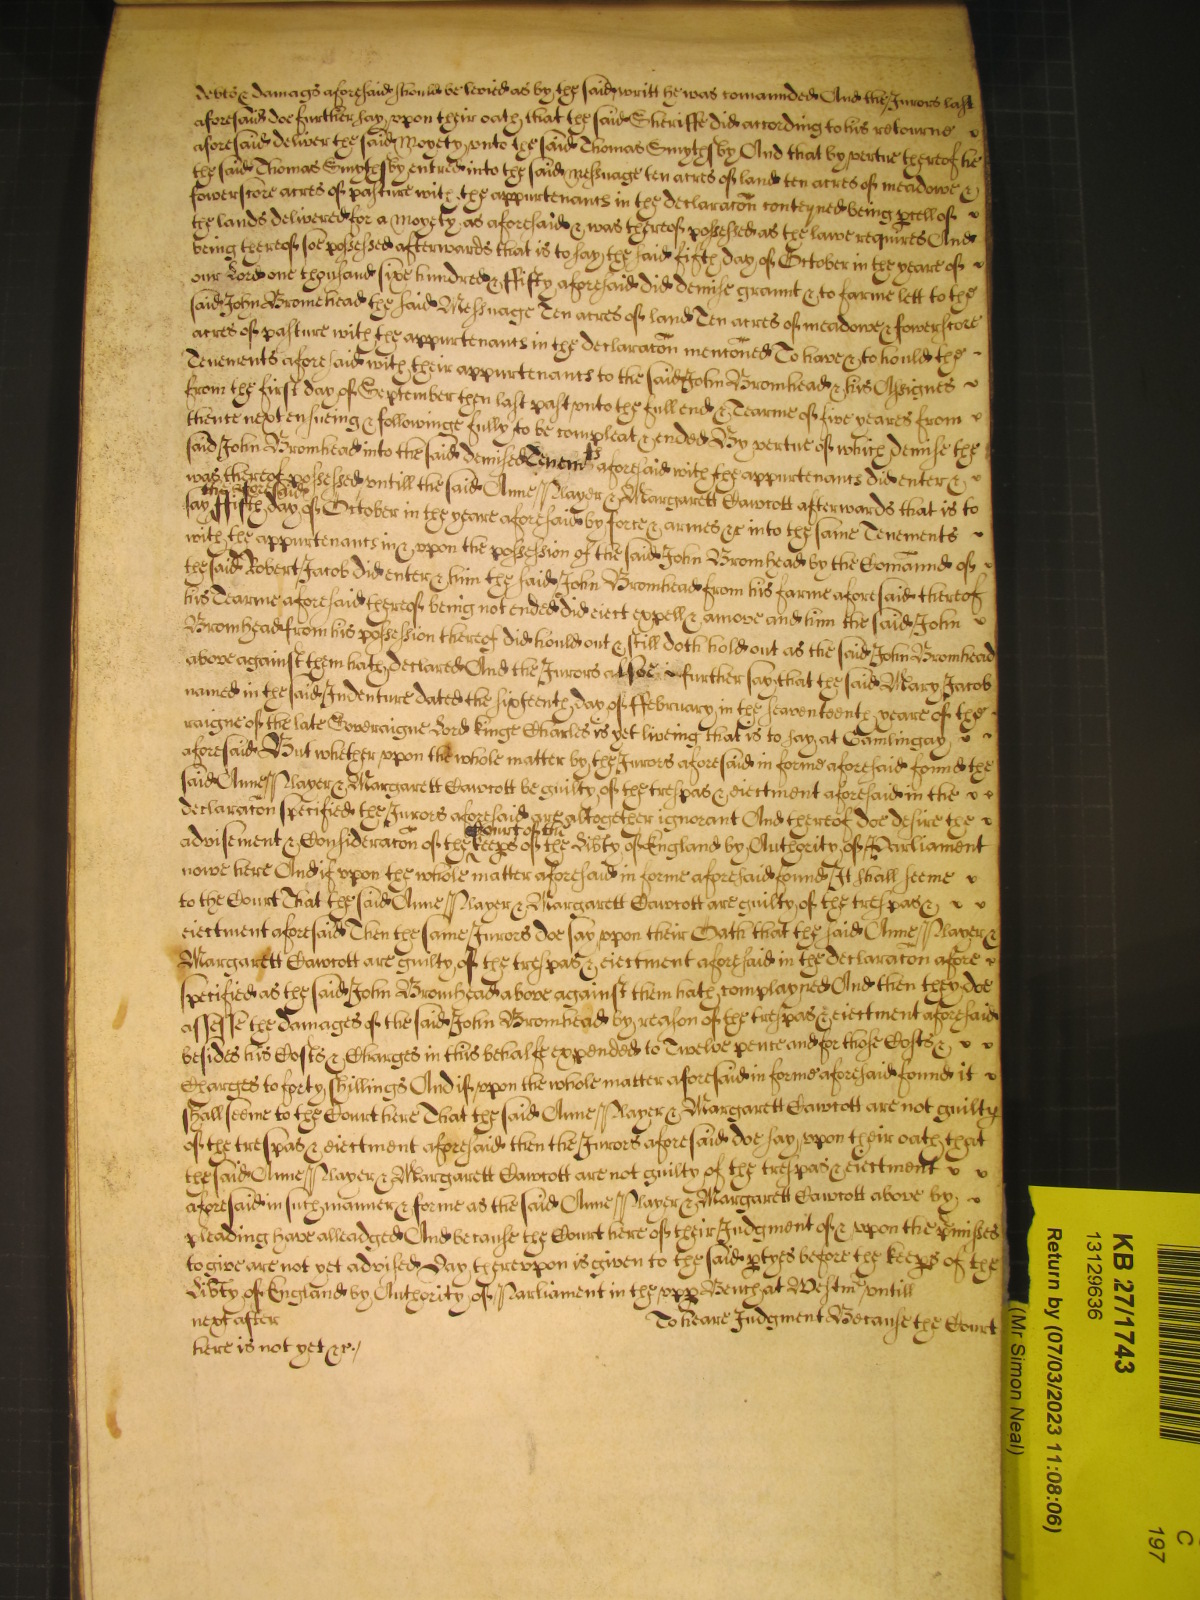 debts & damags aforesaid should be levied as by the said writt he was comaunded And the Jurors last
aforesaid doe further say upon their oath that the said Sheriffe did according to his retourne
aforesaid deliver the said Moyety unto the said Thomas Smythsby And that by vertue thereof he
the said Thomas Smythsby entred into the said messuage ten acres of land ten acres of meadowe &
fowerscore acres of pasture with the appurtenants in the declaracon conteyned being pcell of
the lands delivered for a Moyety as aforesaid & was thereof possessed as the lawe requires And
being thereof soe possessed afterwards that is to say the said fifth day of October in the yeare of
our Lord one thousand sixe hundred & ffifty aforesaid did demise graunt & to farme lett to the
said John Bromehead the said Messuage Ten acres of land Ten acres of meadowe & fowerscore
acres of pasture with the appurtenants in the declaracon mentioned To have & to hould the
Tenements aforesaid with their appurtenants to the said John Bromhead & his Assignes
from the first day of September then last past unto the full end & Tearme of five yeares from
thence next ensueing & followinge fully to be compleat & ended By vertue of which demise the
said John Bromhead into the said demised Tenemts aforesaid with the appurtenants did enter &
was thereof possessed untill the said Anne Slayer & Margarett Cawcott afterwards that is to
the aforesaid
say ffifth day of October in the yeare aforesaid by force & armes &c into the same Tenements
with the appurtenants in & upon the possession of the said John Bromhead by the Comaund of
the said Robert Jacob did enter & him the said John Bromhead from his farme aforesaid thereof
his Tearme aforesaid thereof being not ended did eiect expell & amove and him the said John
Bromhead from his possession thereof did hould out & still doth hold out as the said John Bromhead
above against them hath declared And the Jurors alsoe further say that the said Mary Jacob
named in the said Indenture dated the sixteenth day of ffebruary in the seaventeenth yeare of the
raigne of the late Soveraigne Lord kinge Charles is yet liveing that is to say at Gamlingay
aforesaid But whether upon the whole matter by the Jurors aforesaid in forme aforesaid found the
said Anne Slayer & Margarett Cawcott be guilty of the trespas & eiectment aforesaid in the
declaracon specified the Jurors aforesaid are altogether ignorant And thereof doe desire the
Court of the
advisement & Consideracon of the keeps of the Libty of England by Authority of Parliament
nowe here And if upon the whole matter aforesaid in forme aforesaid found It shall seeme
to the Court That the said Anne Slayer & Margarett Cawcott are guilty of the trespas &
eiectment aforesaid Then the same Jurors doe say upon their Oath that the said Anne Slayer &
Margarett Cawcott are guilty of the trespas & eiectment aforesaid in the declaracon afore
specified as the said John Bromhead above against them hath complayned And then they doe
assesse the damages of the said John Bromhead by reason of the trespas & eiectment aforesaid
besides his Costs & Charges in this behalfe expended to Twelve pence and for those Costs &
Charges to forty shillings And if upon the whole matter aforesaid in forme aforesaid found it
shall seeme to the Court here That the said Anne Slayer & Margarett Cawcott are not guilty
of the trespas & eiectment aforesaid then the Jurors aforesaid doe say upon their oath that
the said Anne Slayer & Margarett Cawcott are not guilty of the trespas & eiectment
aforesaid in such manner & forme as the said Anne Slayer & Margarett Cawcott above by
pleading have alleadged And because the Court here of their Judgment of & upon the pmisses
to give are not yet advised Day thereupon is given to the said ptyes before the keeps of the
Libty of England by Authority of Parliament in the upp Bench at Westmr untill
next after To heare Judgment Because the Court
here is not yet &c
KB 27/1743
13129636
Return by (07/03/2023 11:08:06)
(Mr Simon Neal)
C
197